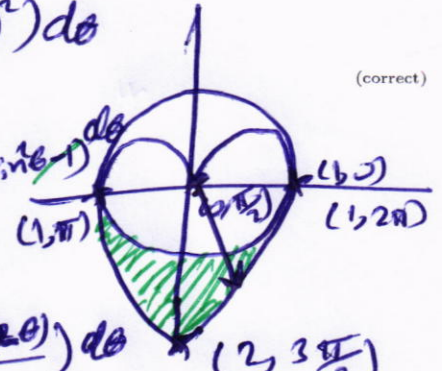 ²)dθ
(correct)
in²θ-1) dθ
(1,0)
(0,π/2)
(1,π)
(1,2π)
2θ) dθ
(2,3π/2)